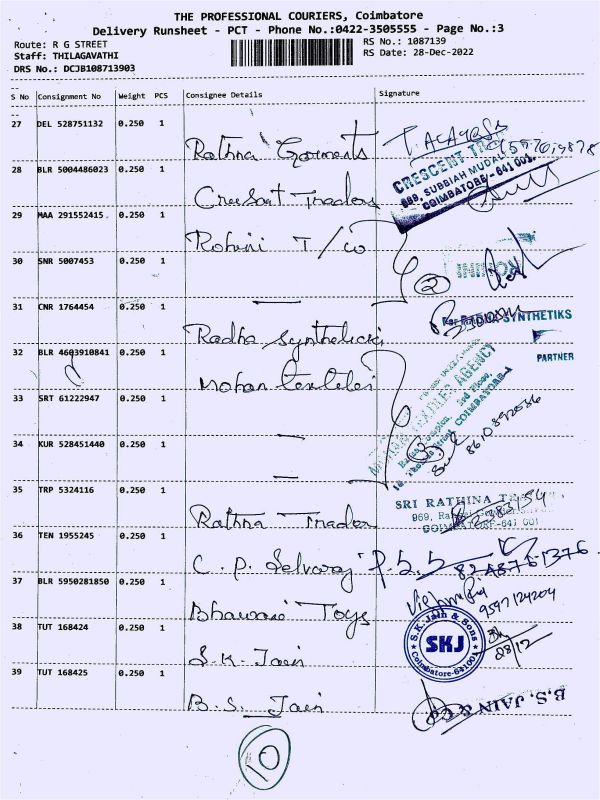 THE PROFESSIONAL COURIERS, Coimbatore
Delivery Runsheet - PCT - Phone No.:0422-3505555 - Page No.:3
Route: R G STREET
RS No.: 1087139
Staff: THILAGAVATHI
RS Date: 28-Dec-2022
DRS No.: DCJB108713903
S No Consignment No Weight PCS Consignee Details Signature
27 DEL 528751132 0.250 1 Rathna Garments
28 BLR 5004486023 0.250 1 Cresent Traders
CRESCENT
COIMBATORE - 641 001.
29 MAA 291552415. 0.250 1 Rohini T/co
30 SNR 5007453 0.250 1 — 2
31 CNR 1764454 0.250 1 Radha Synthetics
SYNTHETIKS
PARTNER
32 BLR 4603910841 0.250 1 Mohan textiles
AGENCY
33 SRT 61222947 0.250 1 —
3
8610892036
34 KUR 528451440 0.250 1 —
35 TRP 5324116 0.250 1 Rathna Traders
SRI RATHINA
969,
COIMBATORE-641 001
36 TEN 1955245 0.250 1 C. P. Selvaraj
37 BLR 5950281850 0.250 1 Bhawani Toys
9597124204
38 TUT 168424 0.250 1 S.K. Jain
S.K. Jain & Sons
SKJ
Coimbatore-641001
28/12
39 TUT 168425 0.250 1 B.S. Jain
B.S. JAIN & CO
10